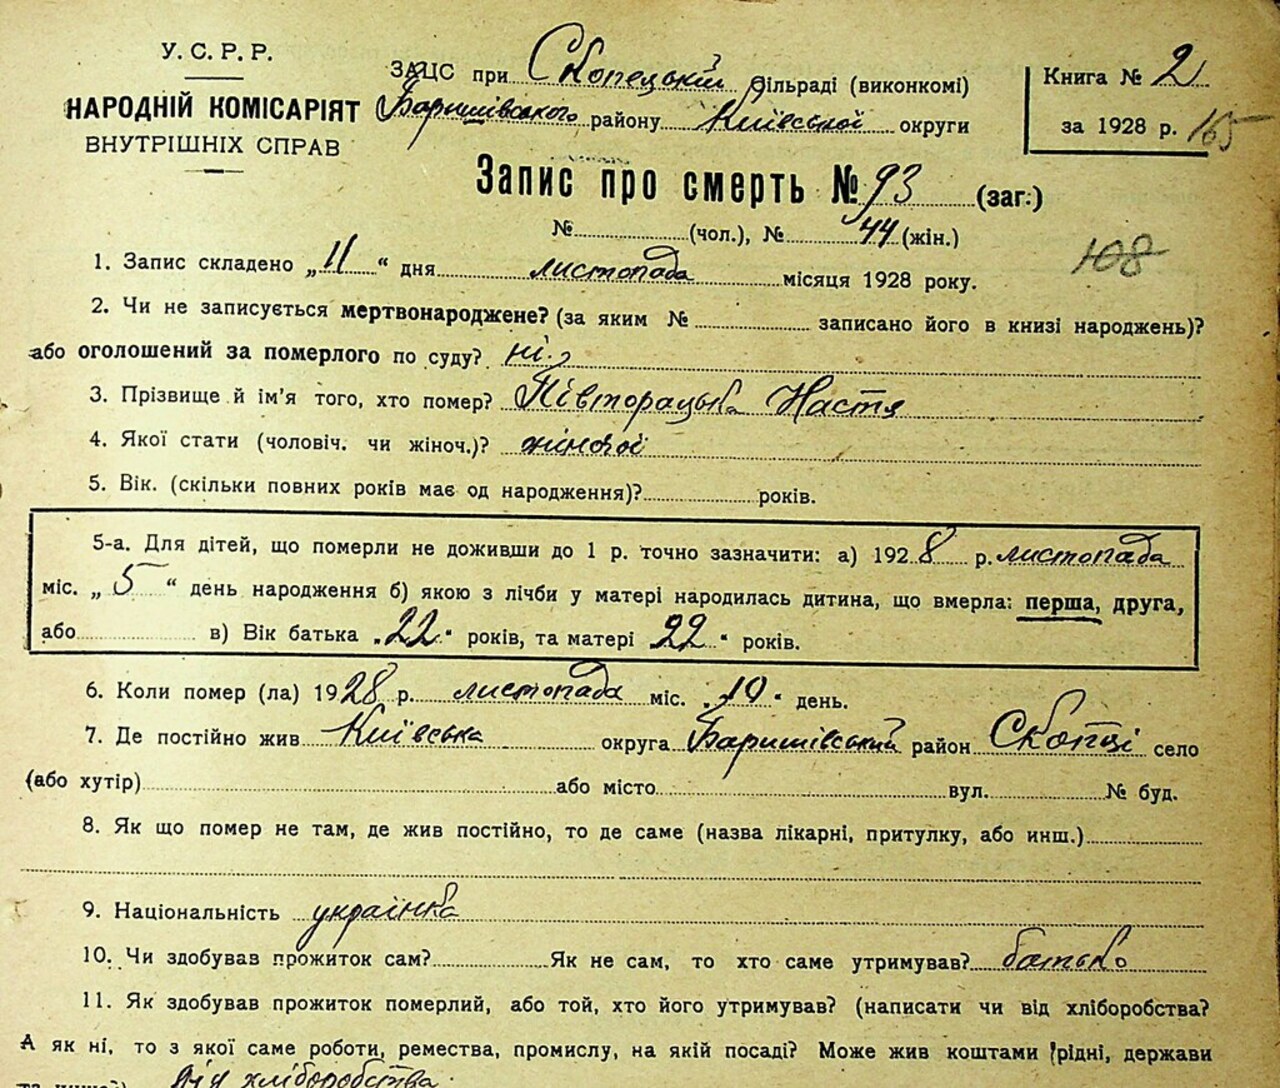 У. С. Р. Р.
НАРОДНІЙ КОМІСАРІЯТ
ВНУТРІШНІХ СПРАВ
ЗАЦС при Скопецькій сільраді (виконкомі)
Баришівського району Київської округи
Книга № 2
за 1928 р. 165
Запис про смерть № 93 (заг.)
№ (чол.), № 44 (жін.)
108
1. Запис складено „11“ дня листопада місяця 1928 року.
2. Чи не записується мертвонароджене? (за яким № записано його в книзі народжень)?
або оголошений за померлого по суду? ні.
3. Прізвище й ім'я того, хто помер? Півторацька Настя
4. Якої стати (чоловіч. чи жіноч.)? жіночої
5. Вік. (скільки повних років має од народження)? років.
5-а. Для дітей, що померли не доживши до 1 р. точно зазначити: а) 1928 р. листопада
міс. „5“ день народження б) якою з лічби у матері народилась дитина, що вмерла: перша, друга,
або в) Вік батька „22“ років, та матері 22“ років.
6. Коли помер (ла) 1928 р. листопада міс. „10“ день.
7. Де постійно жив Київська округа Баришівський район Скопці село
(або хутір) або місто вул. № буд.
8. Як що помер не там, де жив постійно, то де саме (назва лікарні, притулку, або инш.)
9. Національність українка
10. Чи здобував прожиток сам? Як не сам, то хто саме утримував? батько
11. Як здобував прожиток померлий, або той, хто його утримував? (написати чи від хліборобства?
А як ні, то з якої саме роботи, ремества, промислу, на якій посаді? Може жив коштами рідні, держави
від хліборобства.